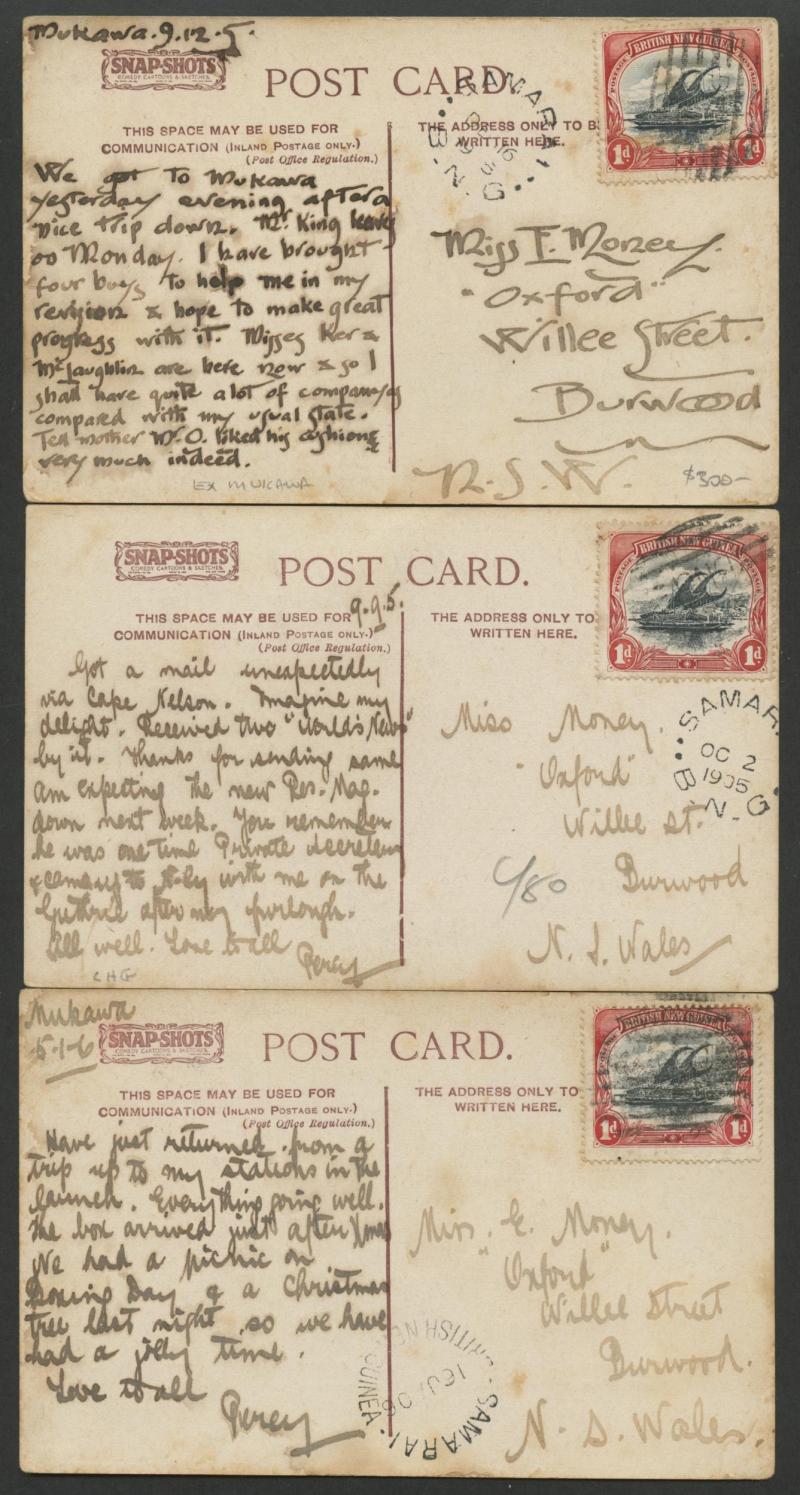 Mukawa. 9.12.5.
SNAP-SHOTS
COMEDY CARTOONS & SKETCHES.
POST CARD.
THIS SPACE MAY BE USED FOR
COMMUNICATION (INLAND POSTAGE ONLY.)
(Post Office Regulation.)
THE ADDRESS ONLY TO B
WRITTEN HERE.
BRITISH NEW GUINEA
POSTAGE POSTAGE
1d 1d
SAMARAI
B.N.G
We got to Mukawa
yesterday evening after a
nice trip down. Mr. King leaves
on Monday. I have brought
four boys to help me in my
revision & hope to make great
progress with it. Misses Ker &
McLaughlin are here now & so I
shall have quite a lot of company as
compared with my usual state.
Tell mother Mr. O. liked his cushions
very much indeed.
Miss E. Money.
"Oxford"
Willee Street.
Burwood
N.S.W.
EX MUKAWA
$300-
SNAP-SHOTS
COMEDY CARTOONS & SKETCHES.
POST CARD.
9.9.5.
THIS SPACE MAY BE USED FOR
COMMUNICATION (INLAND POSTAGE ONLY.)
(Post Office Regulation.)
THE ADDRESS ONLY TO
WRITTEN HERE.
BRITISH NEW GUINEA
POSTAGE POSTAGE
1d 1d
SAMARA
OC 2
1905
B.N.G
Got a mail unexpectedly
via Cape Nelson. Imagine my
delight. Received two "World's News"
by it. Thanks for sending same
am expecting the new Res. Mag.
down next week. You remember
he was one time Private Secretary
& came up to with me on the
Guthrie after my furlough.
All well. Love to all
Percy
Miss Money.
"Oxford"
Willee St.
Burwood
N. S. Wales
C/80
CHG
Mukawa
5-1-6
SNAP-SHOTS
COMEDY CARTOONS & SKETCHES.
POST CARD.
THIS SPACE MAY BE USED FOR
COMMUNICATION (INLAND POSTAGE ONLY.)
(Post Office Regulation.)
THE ADDRESS ONLY TO
WRITTEN HERE.
BRITISH NEW GUINEA
1d 1d
Have just returned from a
trip up to my stations in the
launch. Everything going well.
The box arrived just after Xmas
We had a picnic on
Boxing Day & a Christmas
tree last night so we have
had a jolly time.
Love to all
Percy
Miss. E. Money.
"Oxford"
Willee Street
Burwood.
N. S. Wales.
SAMARAI
BRITISH NEW GUINEA